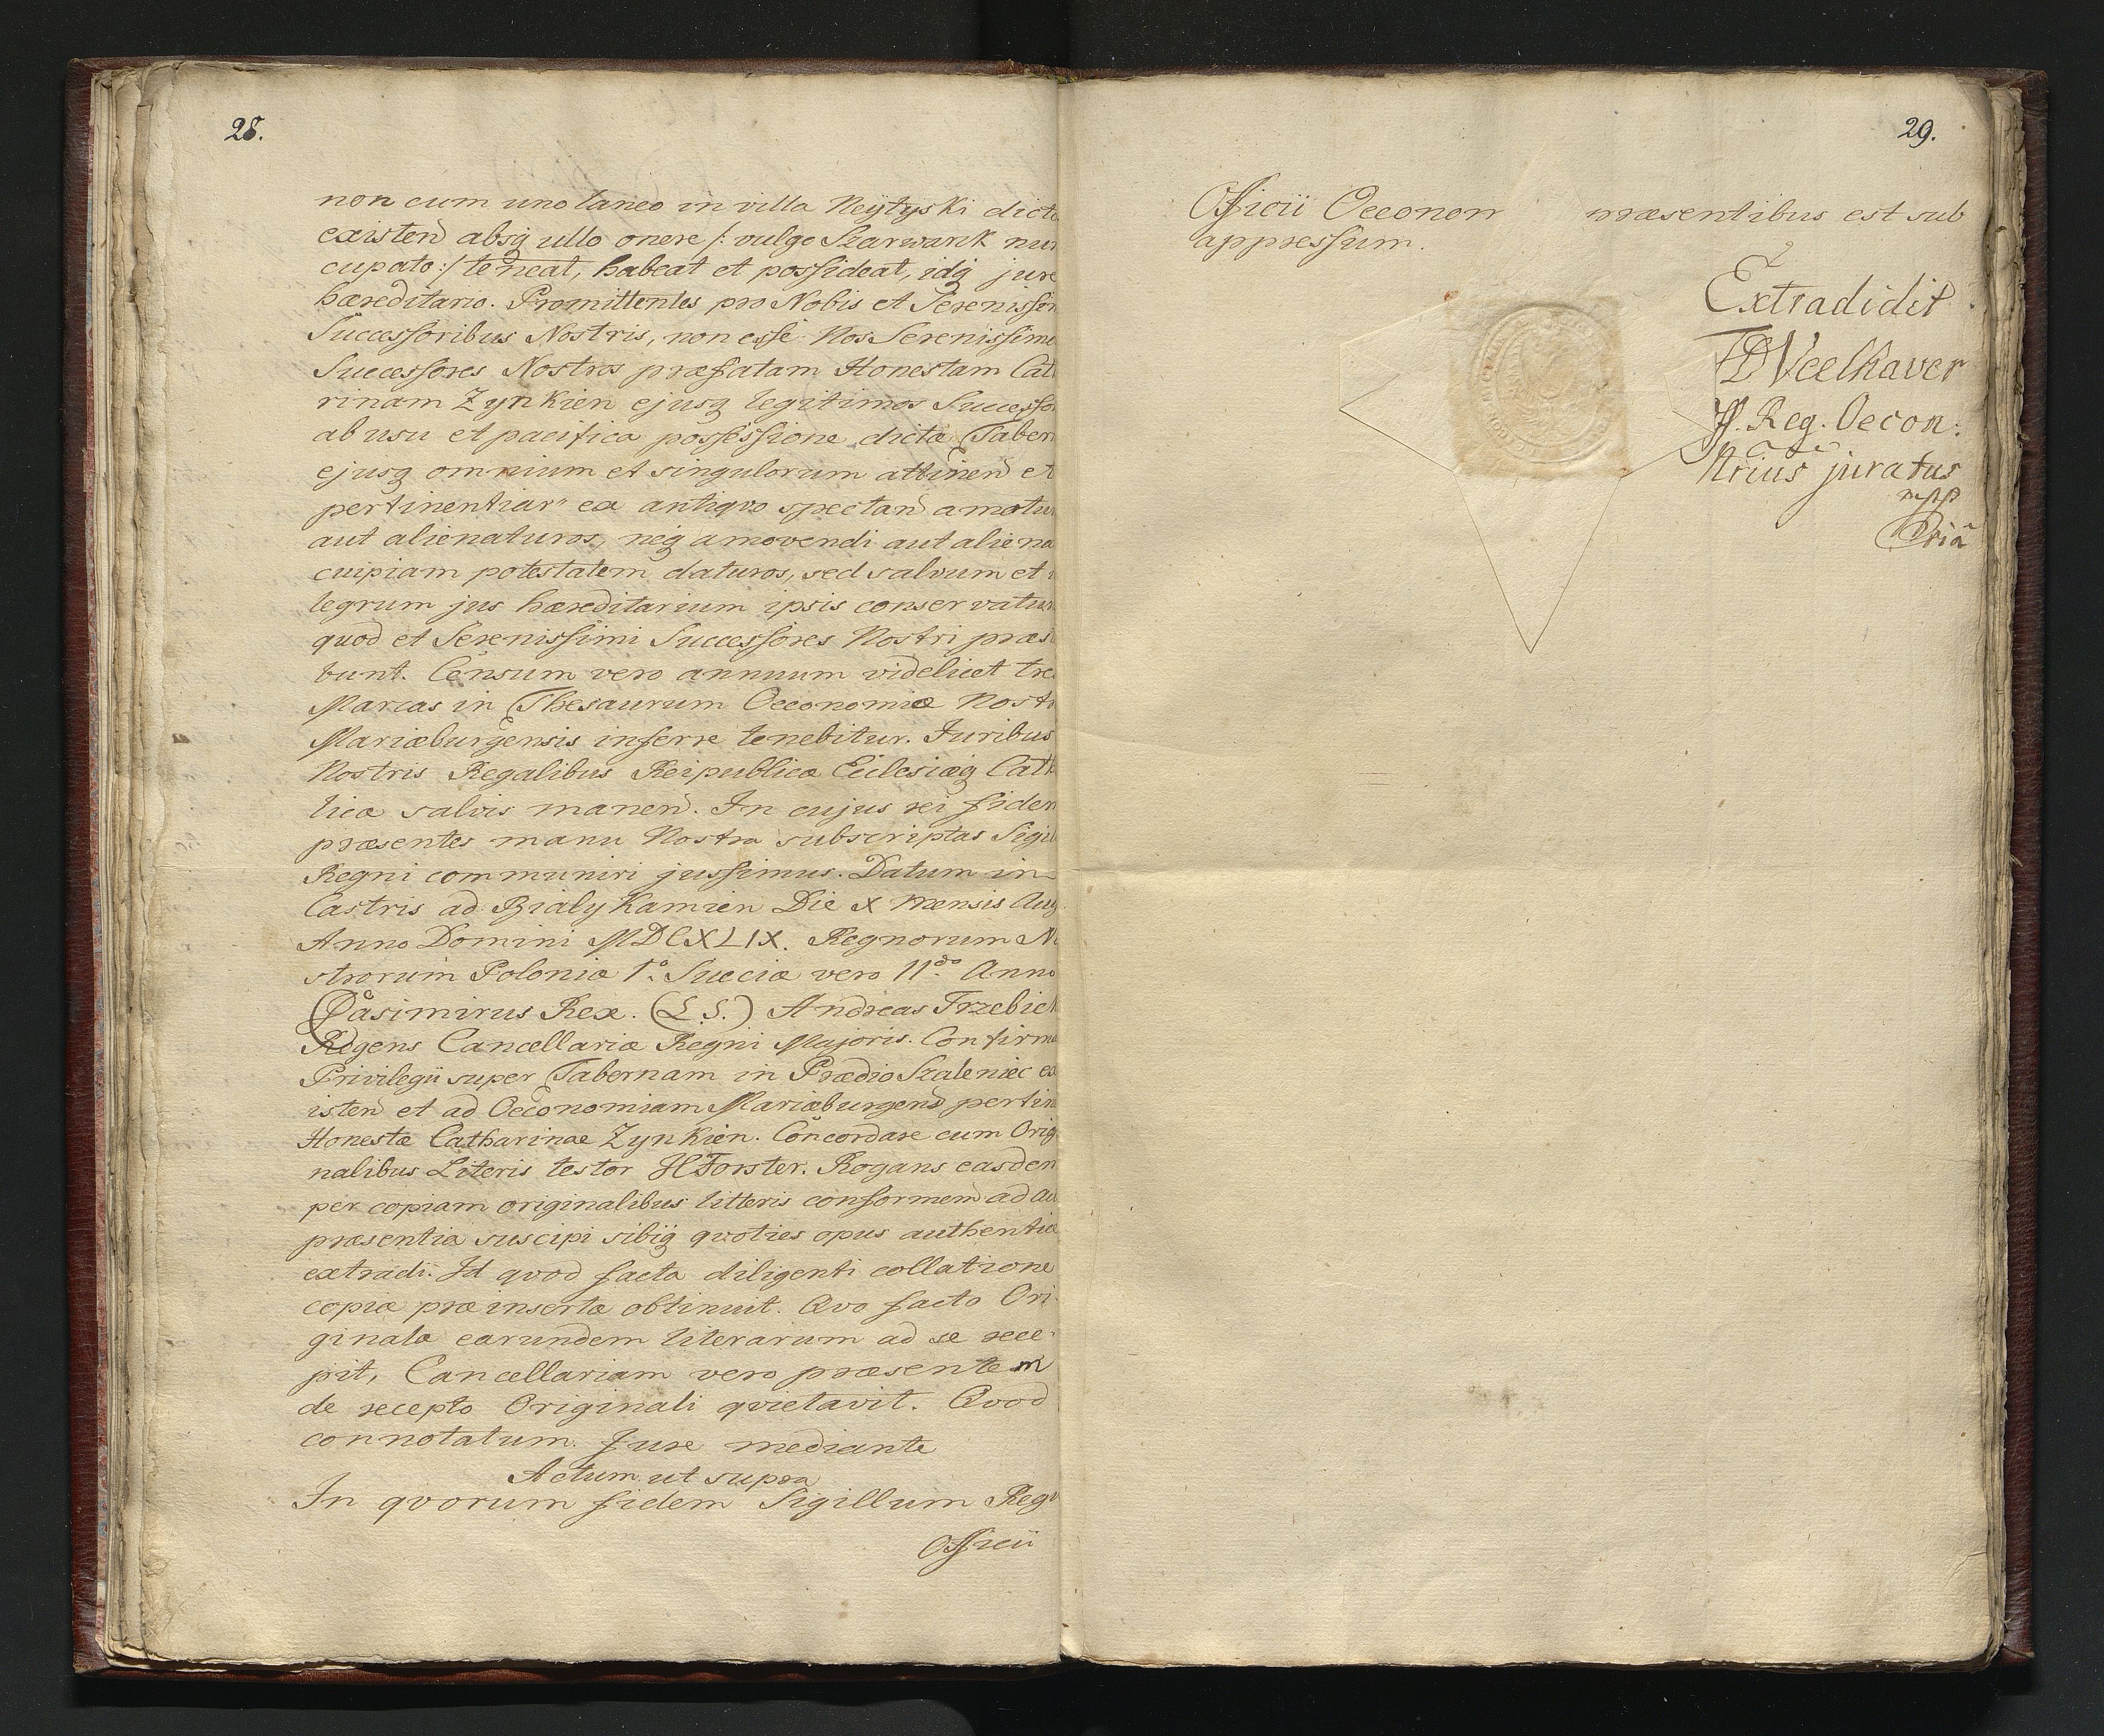 28.
non cum uno laneo in villa Neytyski dicto
existend absq ullo onere /: vulgo Szarwark nun
cupato :/ teneat, habeat et possideat, idq jure
hæreditario. Promittentes pro Nobis et Serenissim
Successoribus Nostris, non esse Nos Serenissimo
Successores Nostros præfatam Honestam Cat
rinam Zynkien ejusq legitimos Successo
ab usu et pacifica possessione dictæ Taber
ejusq omnium et singulorum attinend et
pertinentiar ex antiqvo spectand amotu
aut alienaturos, neq amovendi aut aliena
cuipiam potestatem daturos, sed salvum et
legrum jus hæreditarium ipsis conservatur
quod et Serenissimi Successores Nostri præs
bunt. Censum vero annuum videlicet tre
Marcas in Thesaurum Oeconomiæ Nostr
Mariæburgensis inferre tenebitur. Juribus
Nostris Regalibus Reipublicæ Ecclesiæq Cath
licæ salvis manend. In cujus rei fidem
præsentes manu Nostra subscriptas Sigil
Regni communiri jussimus. Datum in
Castris ad Bialy Kamien Die X mensis Aug
Anno Domini MDCXLIX. Regnorum No
strorum Poloniæ 1º Sueciæ vero 11do Anno
Casimirus Rex. (L. S.) Andreas Trzebick
Regens Cancellariæ Regni Majoris. Confirma
Privilegii super Tabernam in Prædio Szaleniec ex
istend et ad Oeconomiam Mariæburgens pertin
Honestæ Catharinae Zynkien. Concordare cum Orig
nalibus Literis testor H Forster. Rogans easdem
per copiam originalibus litteris conformem ad a
præsentia suscipi sibiq qvoties opus authentice
extradi. Id qvod facta diligenti collatione
copiæ præinsertæ obtinuit. Qvo facto Ori-
ginale earundem literarum ad se rece-
pit, Cancellariam vero præsentem
de recepto Originali qvietavit. Qvod
connotatum. Jure mediante
Actum ut supra
In qvorum fidem Sigillum Reg
Officii
29.
Officii Oeconom præsentibus est sub
appressum.
Extradidit
Veelhaver
Reg. Oecon.
Nrius juratus
mpp